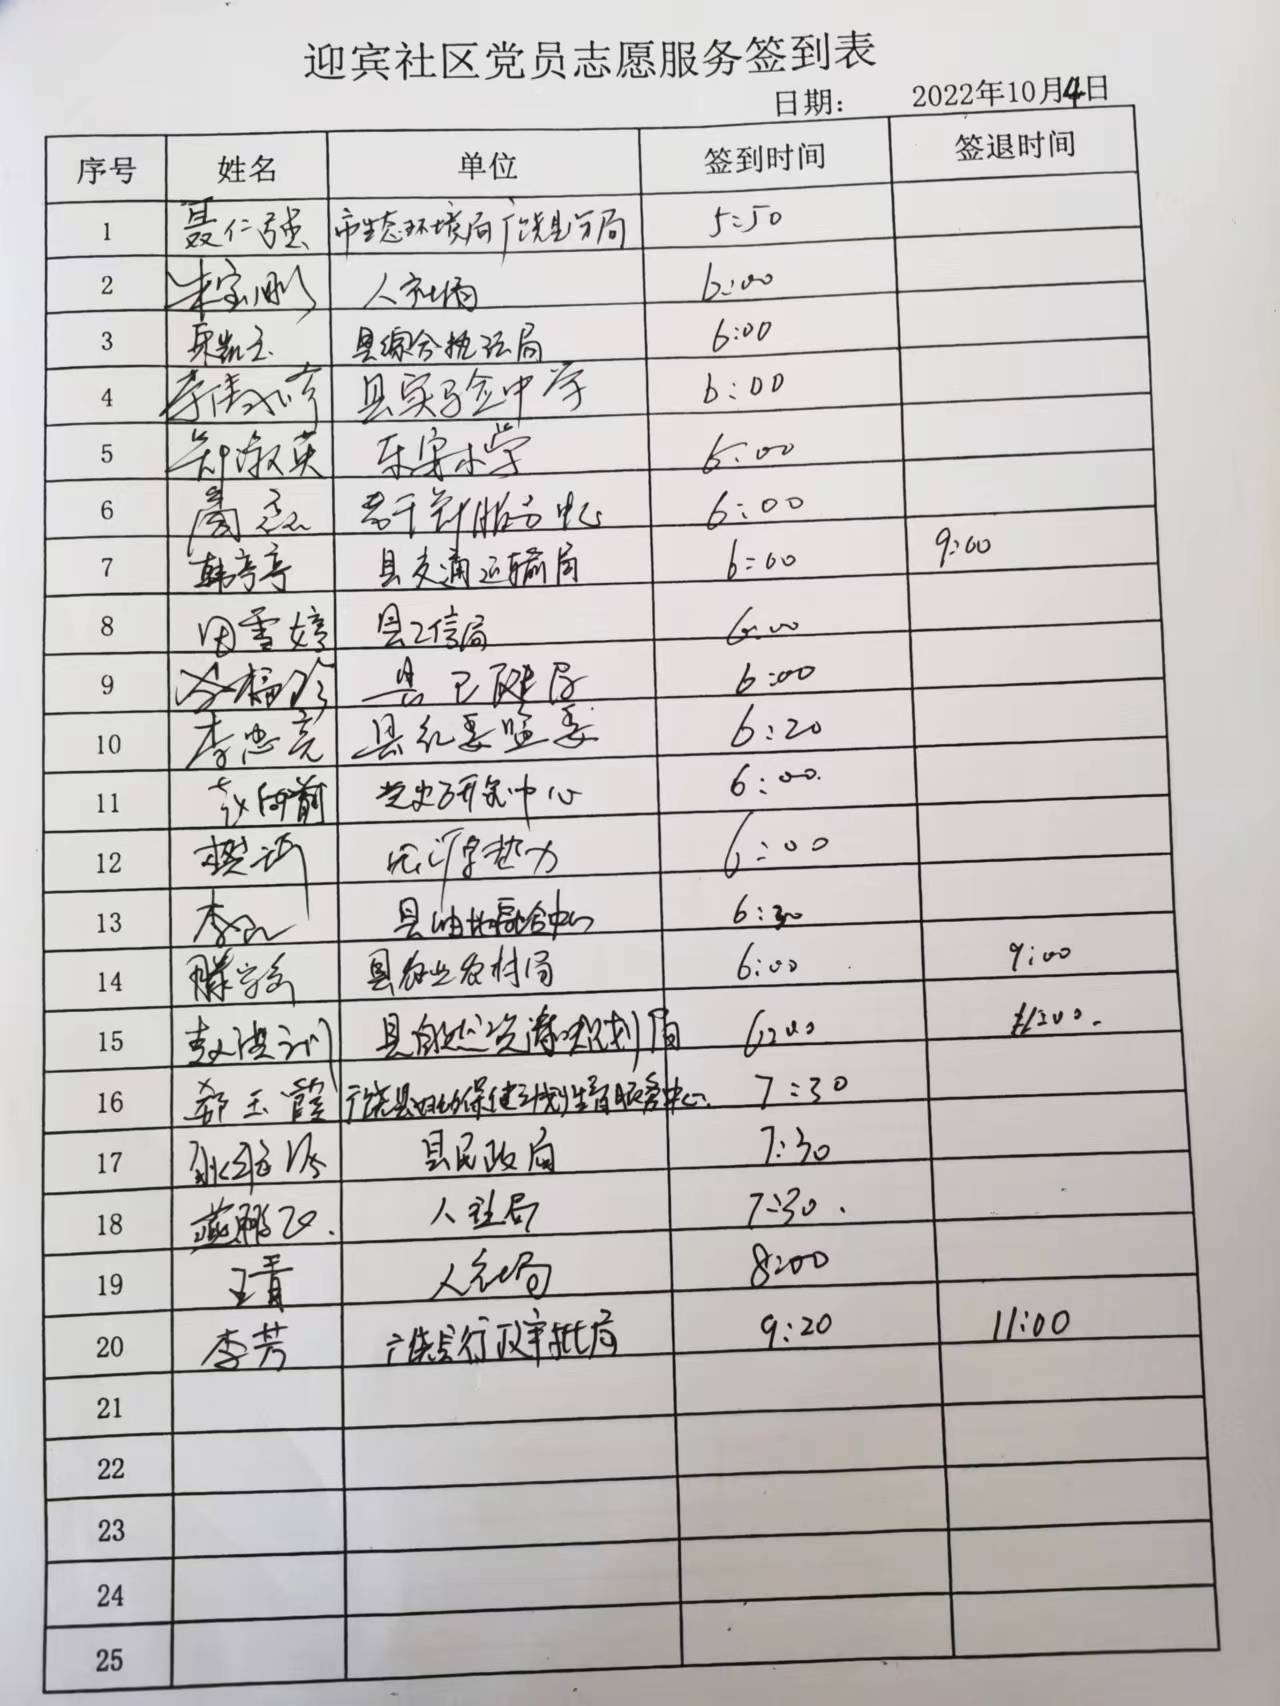 迎宾社区党员志愿服务签到表
日期： 2022年10月4日
序号 姓名 单位 签到时间 签退时间
1 聂仁强 市生态环境局广饶县分局 5:50
2 人社局 6:00
3 县综合执法局 6:00
4 县实验中学 6:00
5 乐安小学 6:00
6 老干部服务中心 6:00
7 韩亭亭 县交通运输局 6:00 9:00
8 田雪婷 县工信局 6:00
9 县卫健局 6:00
10 李忠亮 县纪委监委 6:20
11 赵向前 党史研究中心 6:00
12 热力 6:00
13 县油地融合中心 6:30
14 县农业农村局 6:00 9:00
15 县自然资源规划局 6:00 11:00
16 郗玉霞 广饶县妇幼保健计划生育服务中心 7:30
17 县民政局 7:30
18 人社局 7:30
19 王青 人社局 8:00
20 李芳 广饶县行政审批局 9:20 11:00
21
22
23
24
25